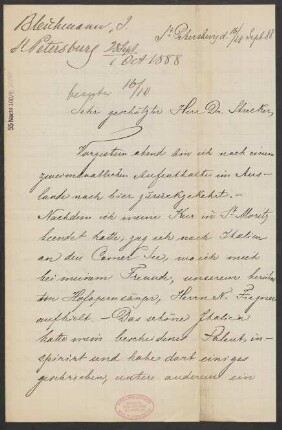 Bleichmann, J.
St. Petersburg
1 Oct 1888
St. Petersburg d. 16/28 Sept. 88
Sehr geschätzter Herr Dr. Strecker,
Vorgestern abend bin ich nach einem
zweimonatlichen Aufenthalte im Aus-
lande nach hier zurückgekehrt. –
Nachdem ich meine Kur in St. Moritz
beendet hatte, zog ich nach Italien
an den Comer See, wo ich mich
bei meinem Freunde, unserem berühm-
ten Hofopernsänger, Herrn N. Figner
aufhielt. – Das schöne Italien
hatte mein bescheidenes Talent, in-
spirirt und habe dort einiges
geschrieben, unter anderem ein